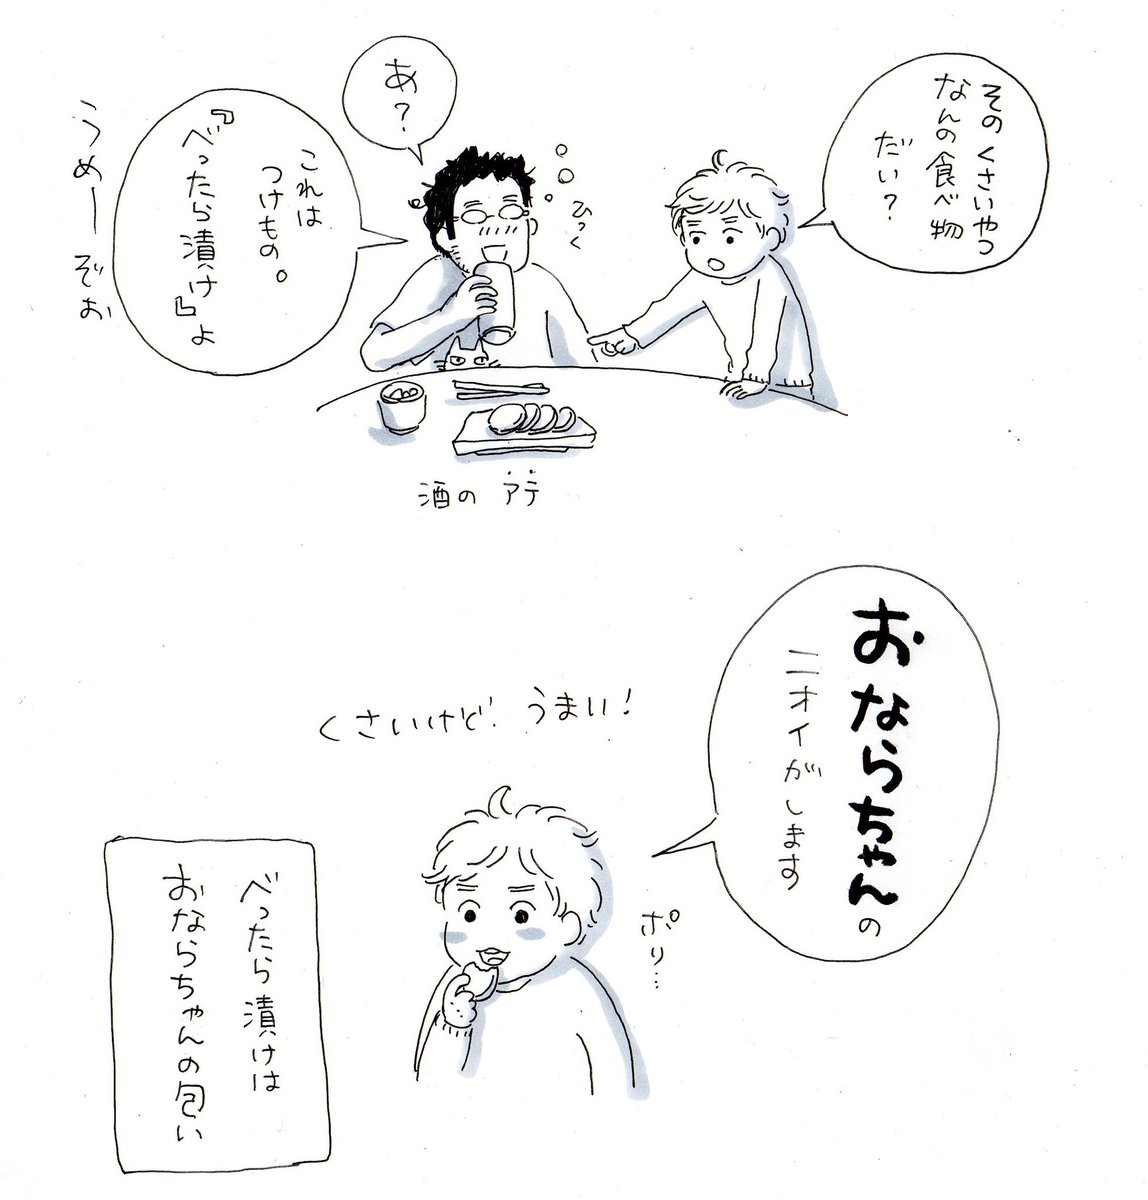 その くさいやつ
なんの食べ物
だい？
あ？
ひっく
これは
つけもの。
『べったら漬け』よ
うめーぞぉ
酒の アテ
おならちゃんの
ニオイがします
くさいけど、うまい！
ポリ…
べったら漬けは
おならちゃんの匂い